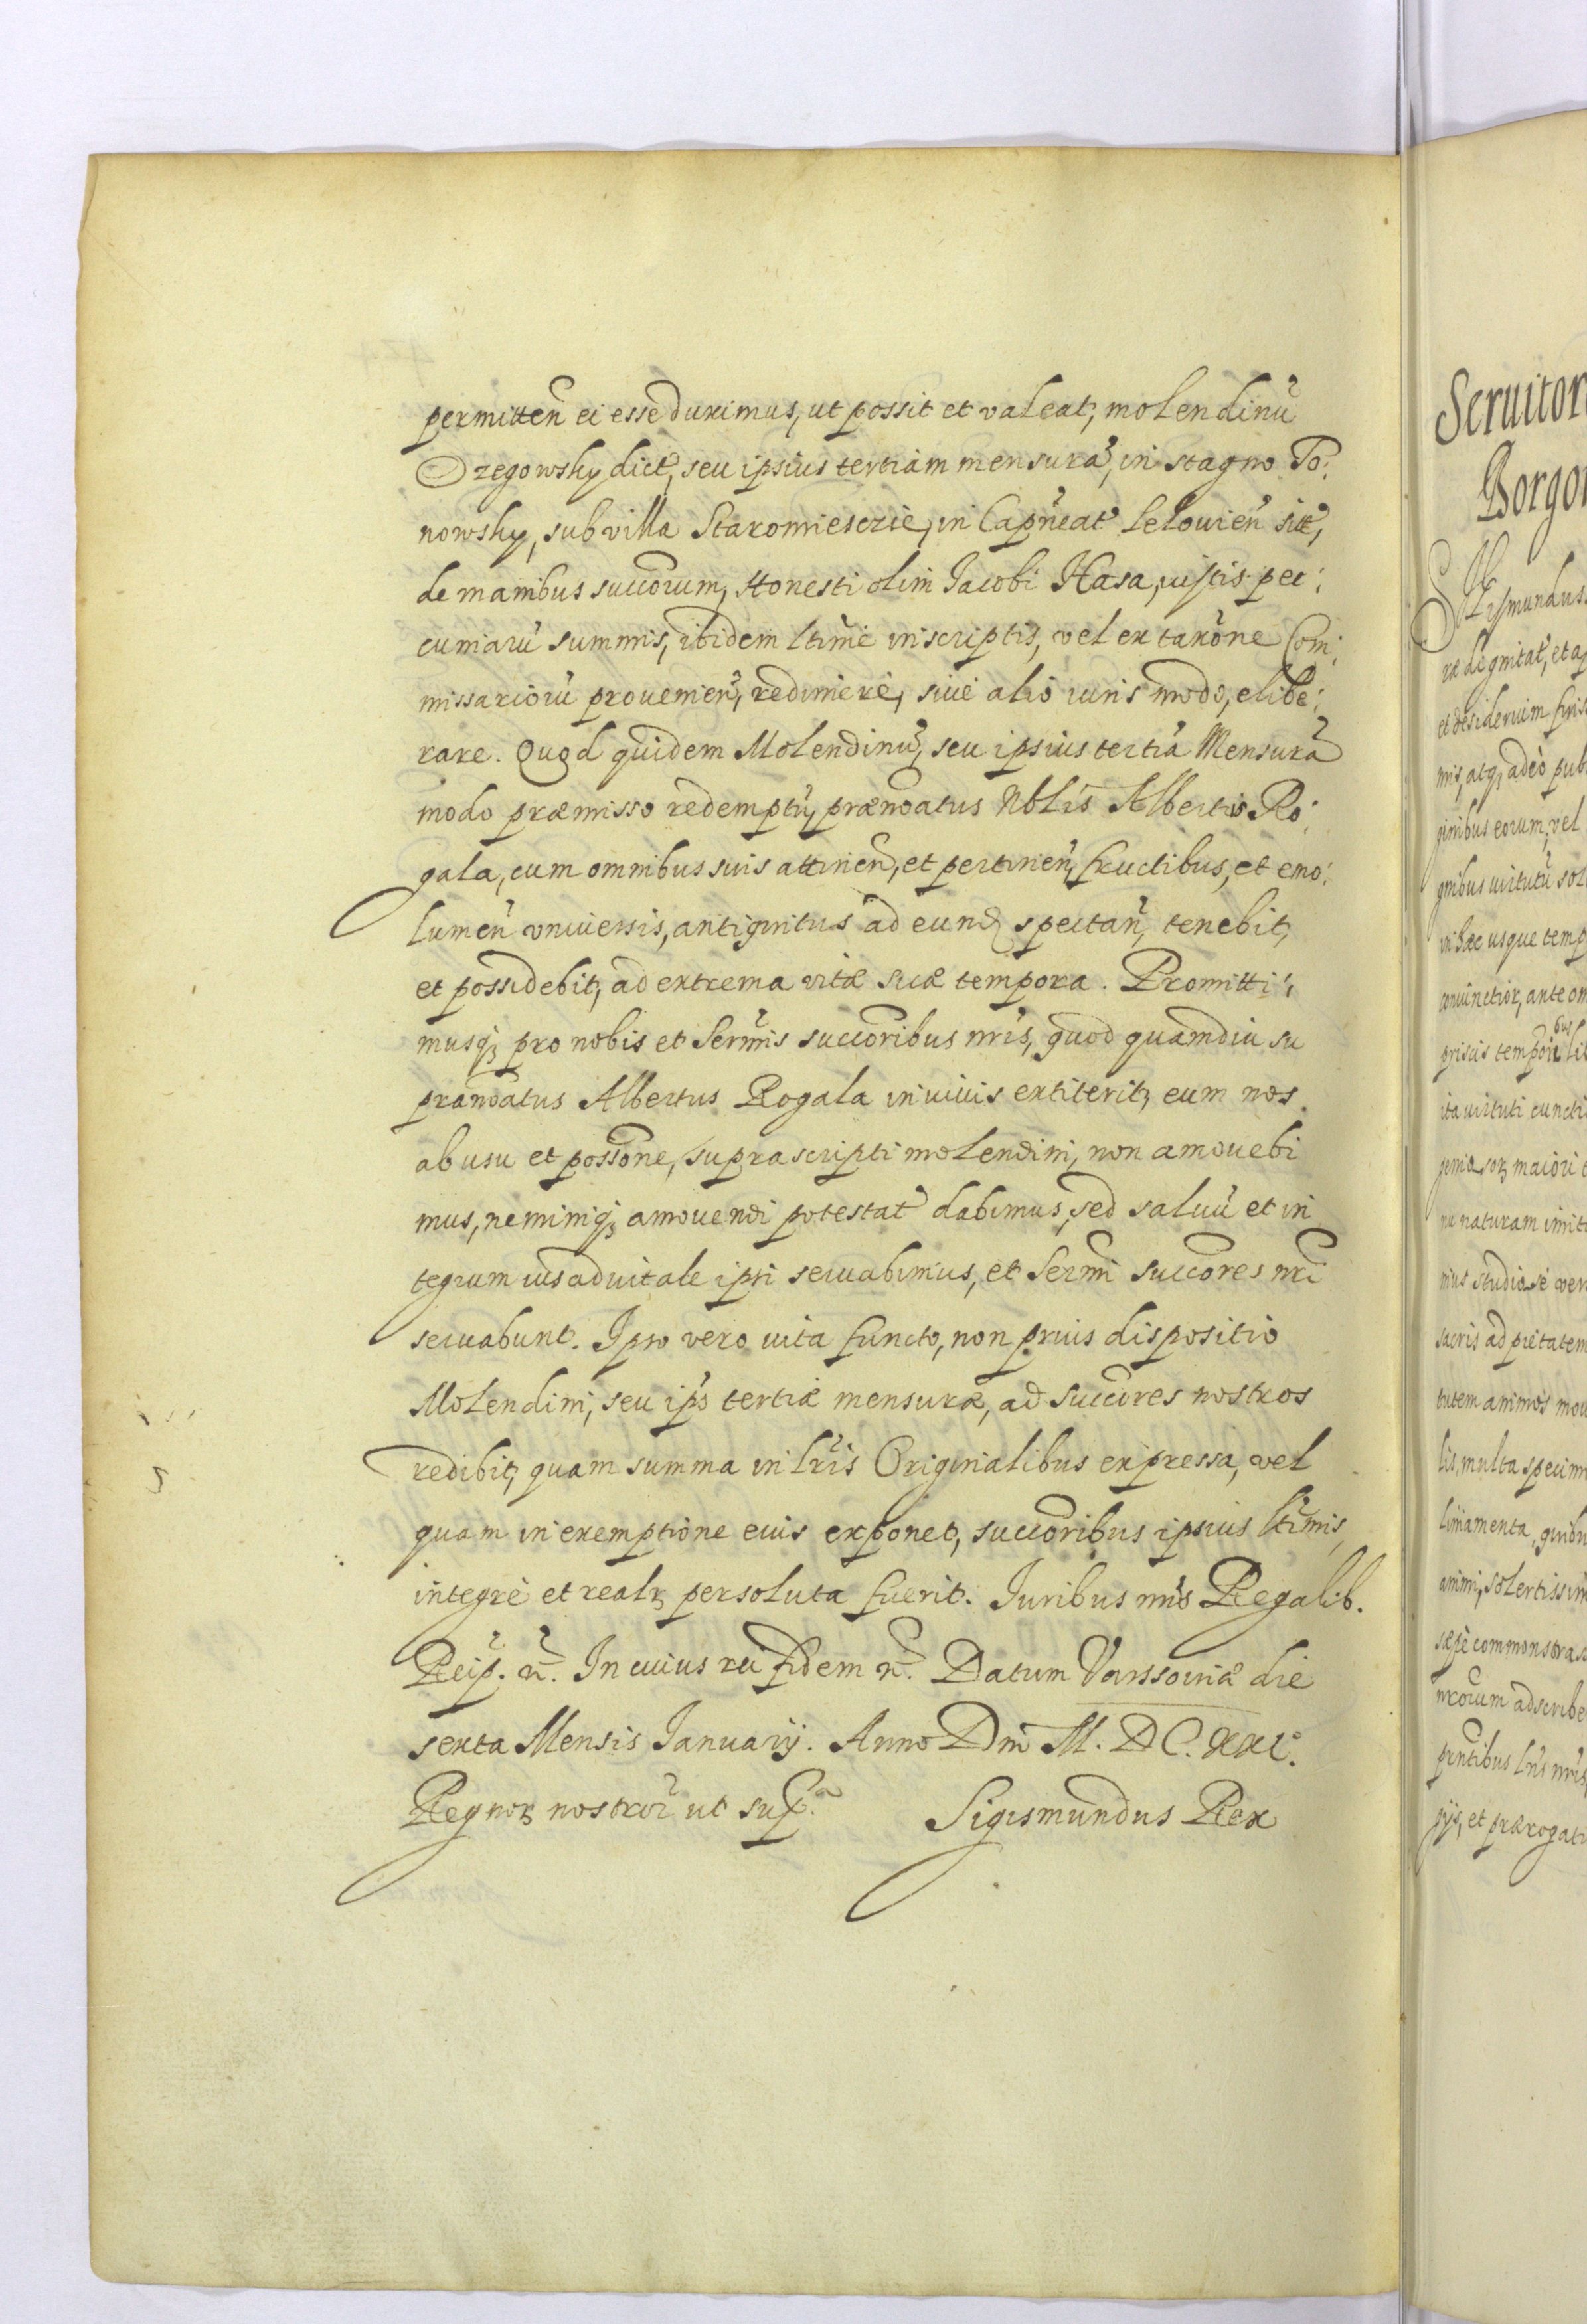 permitten̄ ei esse duximus, ut possit et valeat, molendinū
Ozegowsky dict̄, seu ipsius tertiam mensurā, in stagno To:
nowsky, sub villa Staromiescie, in Capn̄eat̄ Lelouien̄ sit̄,
de manibus succōrum, Honesti olim Iacobi Hasa, iustis pec:
cuniarū summis, ibidem ltimē inscriptis, vel ex taxōne Com:
missariorū prouenien̄, redimere, siue alio iuris modo, elibe:
rare. Quod quidem Molendinū, seu ipsius tertiā Mensurā
modo præmisso redemptū, prænoātus Nblis Albertus Ro:
gala, cum omnibus suis attinen̄, et pertinen̄, fructibus, et emo:
lumen̄ vniuersis, antiquitus ad eund spectan̄, tenebit,
et possidebit, ad extrema vitæ suæ tempora. Promitti:
musq; pro nobis et Serm̄is succōribus nr̄is, quod quamdiu su
pranoātus Albertus Rogala in viuis extiterit, eum nos
ab usu et possōne, suprascripti molendini, non amouebi
mus, neminiq; amouendi potestat̄ dabimus, sed saluū et in
tegrum ius aduitale ipsi seruabimus, et Serm̄i succōres nr̄i
seruabunt. Ipso vero vita functo, non prius dispositio
Molendini, seu ips̄ tertiæ mensuræ, ad succōres nostros
redibit, quam summa in lr̄is Originalibus expressa, vel
quam in exemptione eius exponet, succōribus ipsius ltimis,
integrè et realr persoluta fuerit. Iuribus nr̄is Regalib.
Reip. n̄. In cuius rei fidem n̄. Datum Varssouiæ die
sexta Mensis Ianuarij. Anno Dni M. DC. XXI.
Regnor nostror̄ ut sup̄.ᵃ Sigismundus Rex
Seruitor
Borgo
Sigismundus
ræ dignitat̄, et ap
et desiderium
mis, atq; adeò pub
ginibus eorum, vel
gnibus uirtutū sol
in hæc usque temp
coniunctior, ante om
priscis tempōribus lit
ita uirtuti cuncti
maiori
naturam imit
mus studiose ver
sacris ad pietatem
tutem animos mou
lis, multa specim
liniamenta, quibu
animi, solertissim
sæpè commonstra
nr̄orum adscribe
pr̄ntibus lr̄is nr̄is
gijs, et prærogati